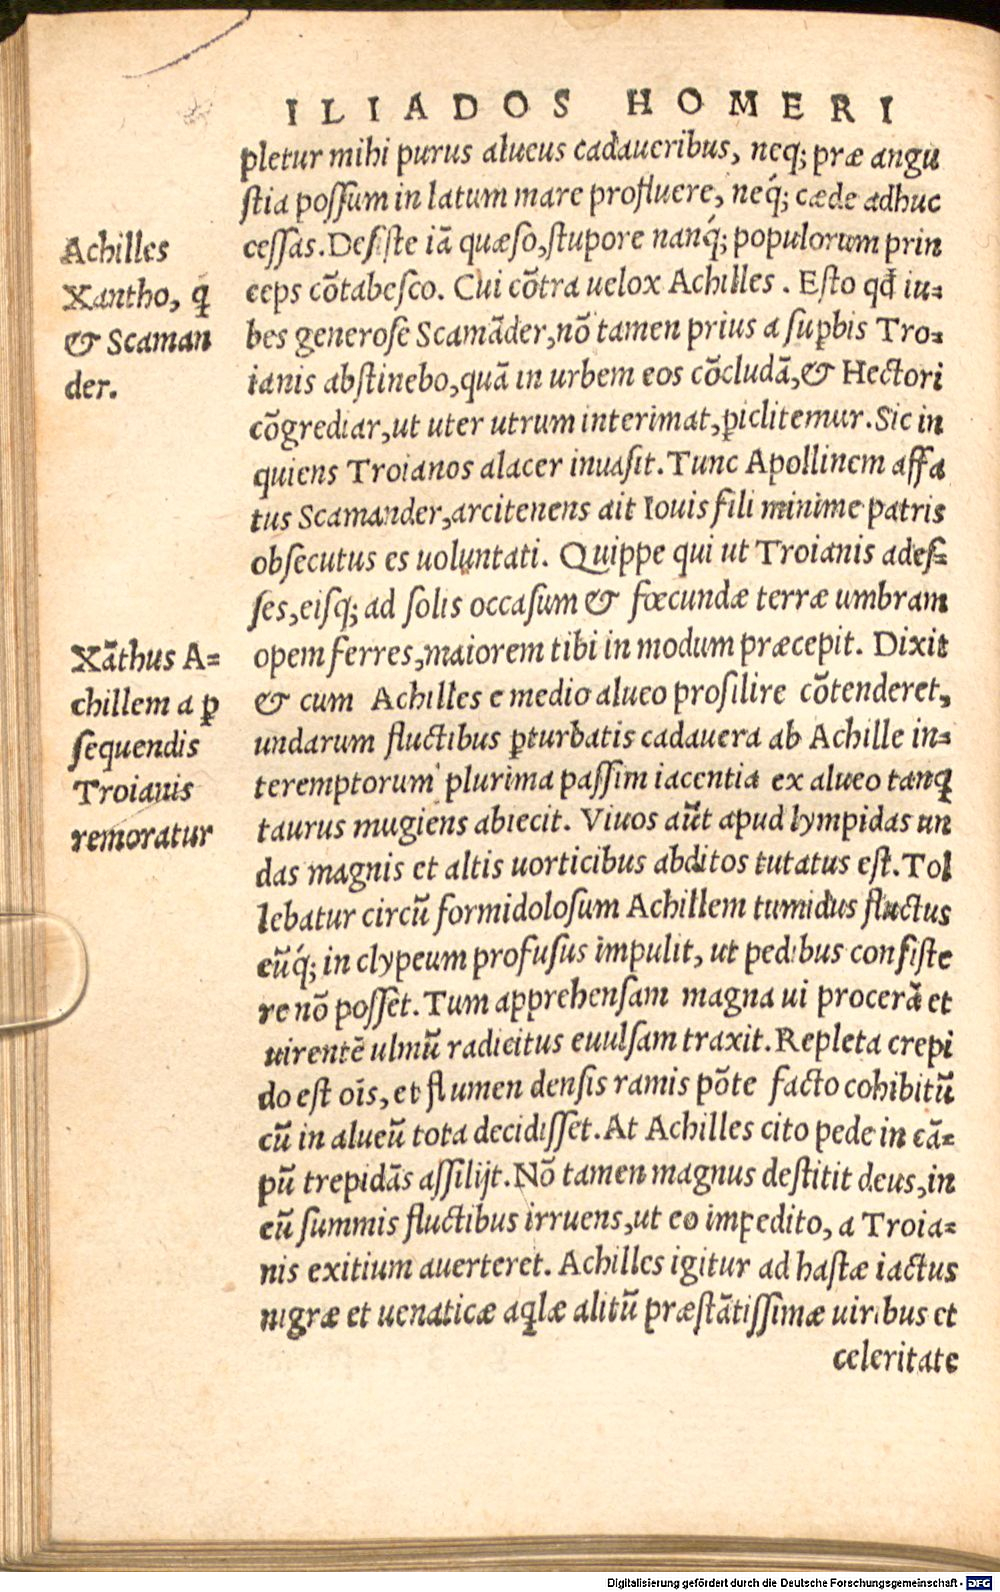 ILIADOS HOMERI
pletur mihi purus alueus cadaueribus, neq; præ angu
stia possum in latum mare profluere, neq́; cæde adhuc
cessas. Desiste iā quæso, stupore nanq́; populorum prin
ceps cōtabesco. Cui cōtra uelox Achilles. Esto qđ iu-
bes generose Scamāder, nō tamen prius a suꝑbis Tro-
ianis abstinebo, quā in urbem eos cōcludā, & Hectori
cōgrediar, ut uter utrum interimat, ꝑiclitemur. Sic in
quiens Troianos alacer inuasit. Tunc Apollinem affa
tus Scamander, arcitenens ait Iouis fili minime patris
obsecutus es uoluntati. Quippe qui ut Troianis ades-
ses, eisq; ad solis occasum & fœcundæ terræ umbram
opem ferres, maiorem tibi in modum præcepit. Dixit
& cum Achilles e medio alueo prosilire cōtenderet,
undarum fluctibus ꝑturbatis cadauera ab Achille in-
teremptorum plurima passim iacentia ex alueo tanꝗ
taurus mugiens abiecit. Viuos aūt apud lympidas un
das magnis et altis uorticibus abditos tutatus est. Tol
lebatur circū formidolosum Achillem tumidus fluctus
eūq́; in clypeum profusus impulit, ut pedibus consiste
re nō posset. Tum apprehensam magna ui procerā et
uirentē ulmū radicitus euulsam traxit. Repleta crepi
do est oīs, et flumen densis ramis pōte facto cohibitū
cū in alueū tota decidisset. At Achilles cito pede in cā-
pū trepidās assilijt. Nō tamen magnus destitit deus, in
eū summis fluctibus irruens, ut eo impedito, a Troia-
nis exitium auerteret. Achilles igitur ad hastæ iactus
nigræ et uenaticæ aꝗlæ alitū præstātissimæ uiribus et
celeritate
Achilles
Xantho, ꝗ
& Scaman
der.
Xāthus A-
chillem a ꝑ
sequendis
Troianis
remoratur
Digitalisierung gefördert durch die Deutsche Forschungsgemeinschaft - DFG